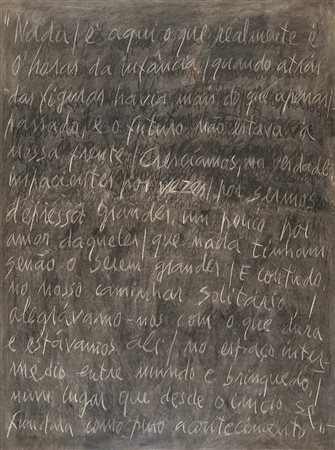 "Nada / é aqui o que realmente é
O horas da infância / quando atrás
das figuras havia mais do que apenas
passado / e o futuro não estava à
nossa frente / Crescíamos, na verdade,
impacientes por vezes / por sermos
depressa grandes, um pouco por
amor daqueles / que nada tinham
senão o serem grandes / E contudo
no nosso caminhar solitário /
alegrávamo-nos com o que dura
e estávamos ali / no espaço inter
médio entre mundo e brinquedo, /
num lugar que desde o início se
fundara como puro acontecimento"